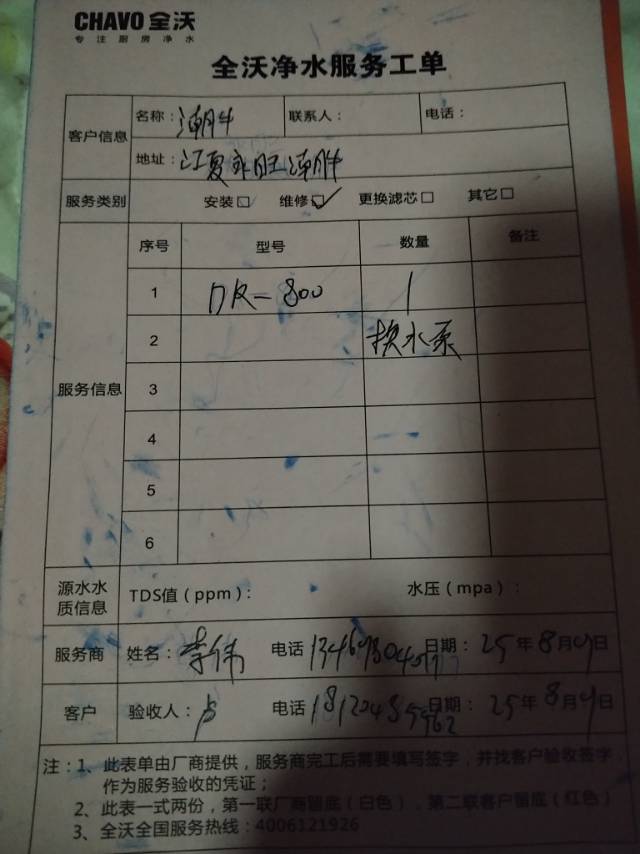 CHAVO 全沃
专注厨房净水
全沃净水服务工单
客户信息 名称：潮牛 联系人： 电话：
地址：江夏
服务类别 安装□ 维修☑ 更换滤芯□ 其它□
服务信息 序号 型号 数量 备注
1 DR-800 1
2 换水泵
3
4
5
6
源水水质信息 TDS值（ppm）： 水压（mpa）：
服务商 姓名：李伟 电话 日期：25年8月9日
客户 验收人： 电话 日期：25年8月9日
注：1、此表单由厂商提供，服务商完工后需要填写签字，并找客户验收签字，
作为服务验收的凭证；
2、此表一式两份，第一联厂商留底（白色），第二联客户留底（红色）
3、全沃全国服务热线：4006121926